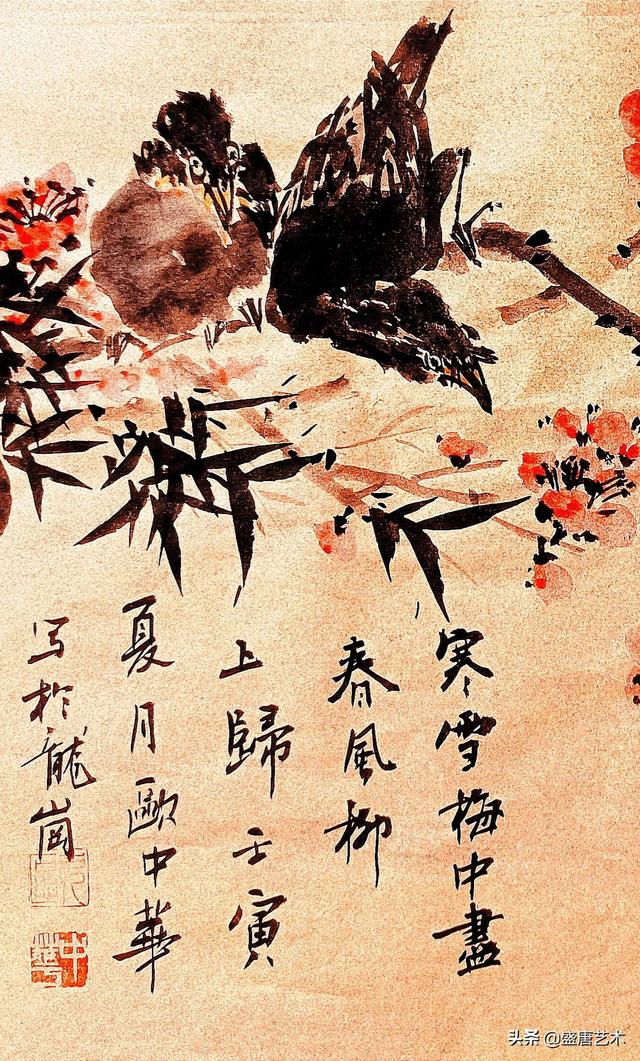 寒雪梅中盡
春風柳
上歸壬寅
夏月歐中華
写於龍崗
中華
头条 @盛唐艺术